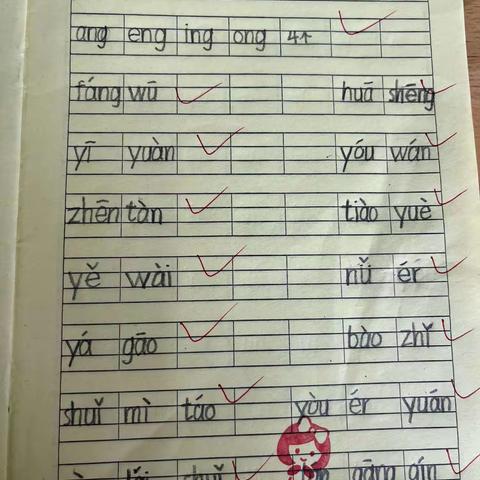 ang eng ing ong 4个
fáng wū huā shēng
yī yuàn yóu wán
zhēn tàn tiào yuè
yě wài nǚ ér
yá gāo bào zhǐ
shuǐ mì táo yòu ér yuán
gāng qín